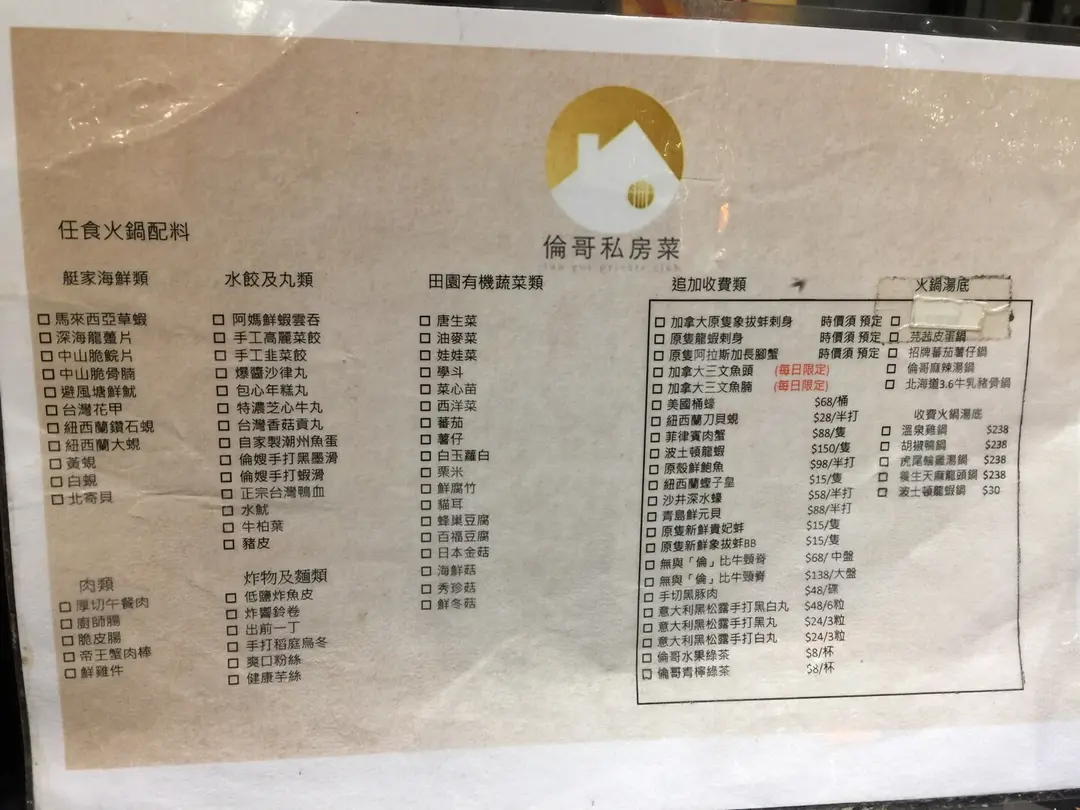 倫哥私房菜
任食火鍋配料
艇家海鮮類
馬來西亞草蝦
深海龍躉片
中山脆鯇片
中山脆骨腩
避風塘鮮魷
台灣花甲
紐西蘭鑽石蜆
紐西蘭大蜆
黃蜆
白蜆
北寄貝
肉類
厚切午餐肉
廚師腸
脆皮腸
帝王蟹肉棒
鮮雞件
水餃及丸類
阿媽鮮蝦雲吞
手工高麗菜餃
手工韭菜餃
爆醬沙律丸
包心年糕丸
特濃芝心牛丸
台灣香菇貢丸
自家製潮州魚蛋
倫嫂手打黑墨滑
倫嫂手打蝦滑
正宗台灣鴨血
水魷
牛柏葉
豬皮
炸物及麵類
低鹽炸魚皮
炸響鈴卷
出前一丁
手打稻庭烏冬
爽口粉絲
健康芋絲
田園有機蔬菜類
唐生菜
油麥菜
娃娃菜
學斗
菜心苗
西洋菜
蕃茄
薯仔
白玉蘿白
栗米
鮮腐竹
貓耳
蜂巢豆腐
百福豆腐
日本金菇
海鮮菇
秀珍菇
鮮冬菇
追加收費類
加拿大原隻象拔蚌刺身 時價須 預定
原隻龍蝦刺身 時價須 預定
原隻阿拉斯加長腳蟹 時價須 預定
加拿大三文魚頭 (每日限定)
加拿大三文魚腩 (每日限定)
美國桶蠔 $68/桶
紐西蘭刀貝蜆 $28/半打
菲律賓肉蟹 $88/隻
波士頓龍蝦 $150/隻
原殼鮮鮑魚 $98/半打
紐西蘭蟶子皇 $15/隻
沙井深水蠔 $58/半打
青島鮮元貝 $88/半打
原隻新鮮貴妃蚌 $15/隻
原隻新鮮象拔蚌BB $15/隻
無與「倫」比牛頸脊 $68/中盤
無與「倫」比牛頸脊 $138/大盤
手切黑豚肉 $48/碟
意大利黑松露手打黑白丸 $48/6粒
意大利黑松露手打黑丸 $24/3粒
意大利黑松露手打白丸 $24/3粒
倫哥水果綠茶 $8/杯
倫哥青檸綠茶 $8/杯
火鍋湯底
芫茜皮蛋鍋
招牌蕃茄薯仔鍋
倫哥麻辣湯鍋
北海道3.6牛乳豬骨鍋
收費火鍋湯底
溫泉雞鍋 $238
胡椒鴨鍋 $238
虎尾輪雞湯鍋 $238
養生天麻龍頭鍋 $238
波士頓龍蝦鍋 $30